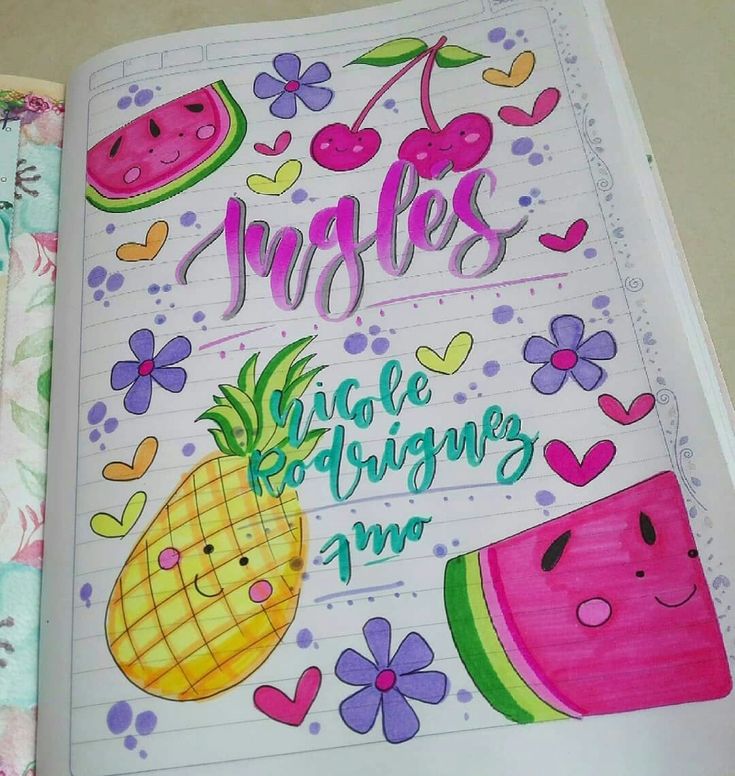 Inglés
nicole
Rodríguez
7mo